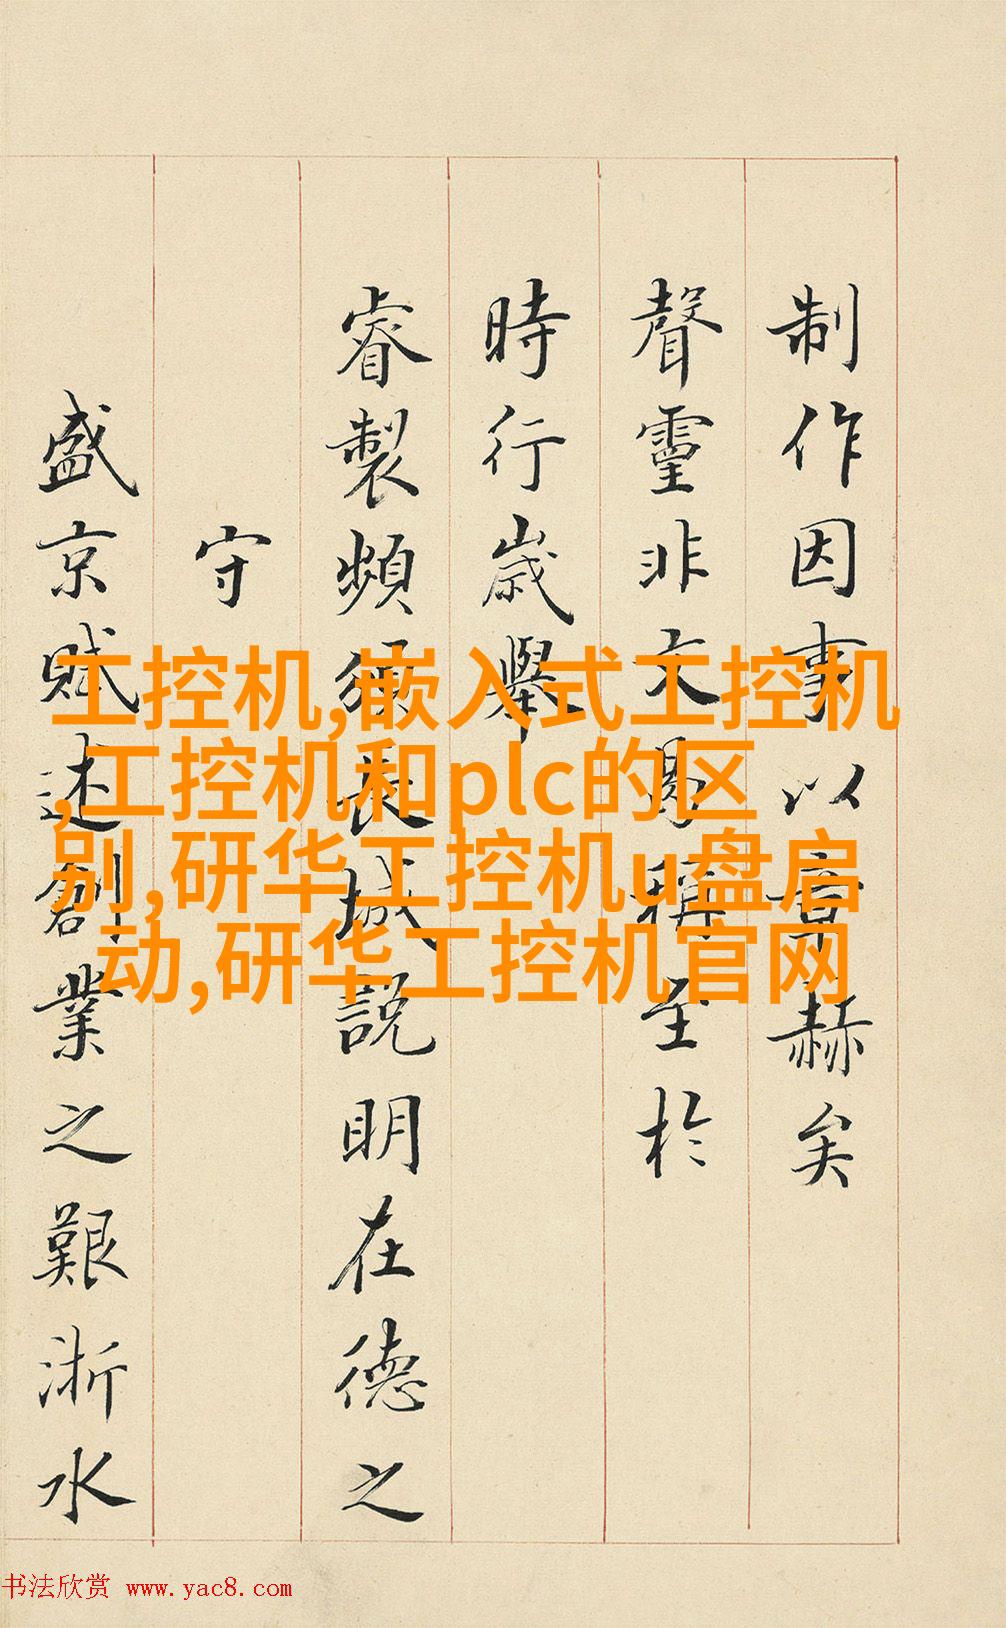 制作因事以章赫矣
聲靈非文曷稱至於
時行歲舉
睿製頻頒長城說明在德之
守
盛京賦述創業之艱浙水
工控机,嵌入式工控机
,工控机和plc的区
别,研华工控机u盘启
动,研华工控机官网
书法欣赏 www.yac8.com